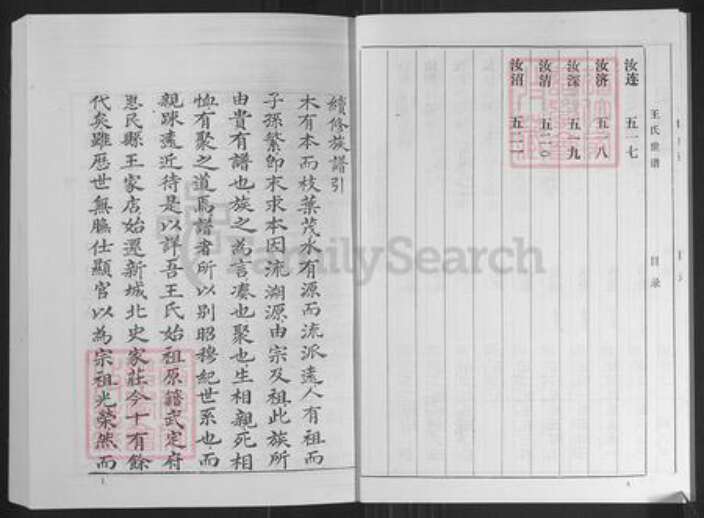 汝连 五一七
汝济 五一八
汝深 五一九
汝清 五二〇
汝沼 五二一
王氏世谱 目录
續修族譜引
木有本而枝葉茂水有源而流派遠人有祖而
子孫繁卽末求本因流溯源由宗及祖此族所
由貴有譜也族之為言湊也聚也生相親死相
恤有聚之道焉譜者所以別昭穆紀世系也而
親踈遠近待是以詳吾王氏始祖原籍武定府
惠民縣王家店始遷新城北史家莊今十有餘
代矣雖歷世無膴仕顯官以為宗祖光榮然而
1
FamilySearch